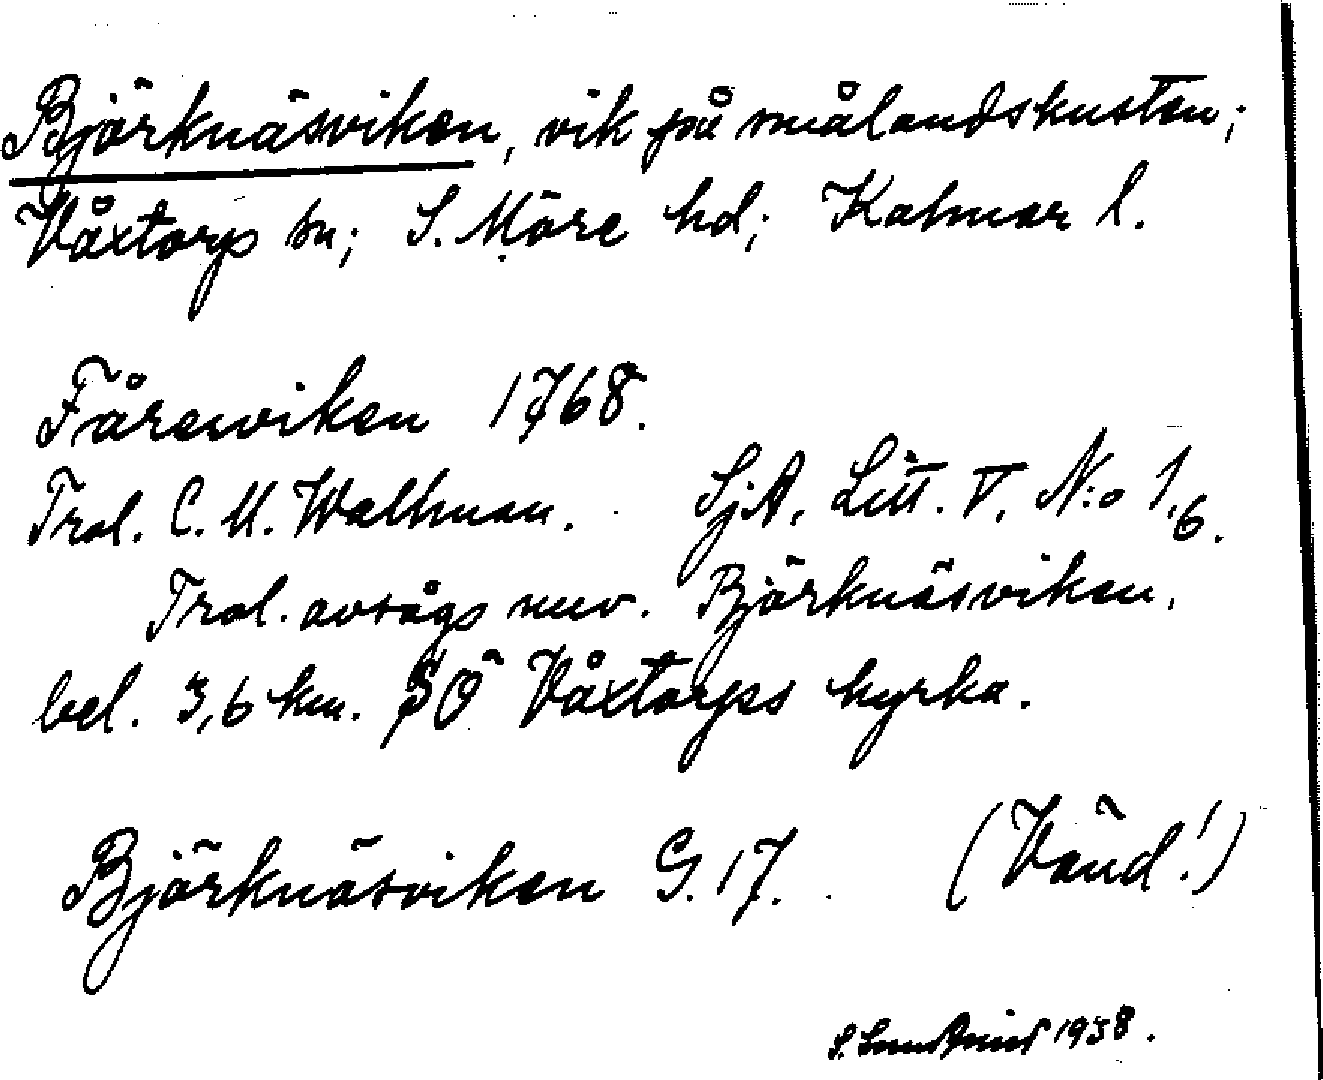 Björknäsviken, vik på smålandskusten;
Våxtorps sn; S. Möre hd; Kalmar l.
Fårewiken 1768.
Trol. C. U. Wallman. SjA. Litt. V. N:o 1,6.
Trol. avsågs nuv. Björknäsviken,
bel. 3,6 km. SO Våxtorps kyrka.
Björknäsviken G. 17. (Vänd!)
S. 1938.